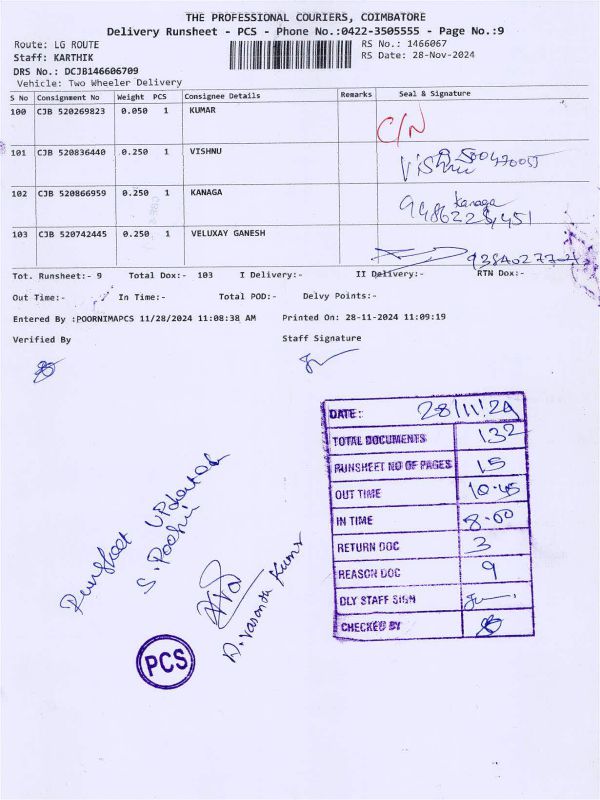 THE PROFESSIONAL COURIERS, COIMBATORE
Delivery Runsheet - PCS - Phone No.:0422-3505555 - Page No.:9
Route: LG ROUTE
RS No.: 1466067
Staff: KARTHIK
RS Date: 28-Nov-2024
DRS No.: DCJB146606709
Vehicle: Two Wheeler Delivery
S No Consignment No Weight PCS Consignee Details Remarks Seal & Signature
100 CJB 520269823 0.050 1 KUMAR C/N
101 CJB 520836440 0.250 1 VISHNU Vishnu
102 CJB 520866959 0.250 1 KANAGA Kanaga
103 CJB 520742445 0.250 1 VELUXAY GANESH
Tot. Runsheet:- 9 Total Dox:- 103 I Delivery:- II Delivery:- RTN Dox:-
Out Time:- In Time:- Total POD:- Delvy Points:-
Entered By :POORNIMAPCS 11/28/2024 11:08:38 AM Printed On: 28-11-2024 11:09:19
Verified By Staff Signature
DATE: 28/11/24
TOTAL DOCUMENTS 132
RUNSHEET NO OF PAGES 15
OUT TIME 10.45
IN TIME 8.00
RETURN DOC 3
REASON DOC 9
DLY STAFF SIGN
CHECKED BY
D. Vasantha Kumar
PCS